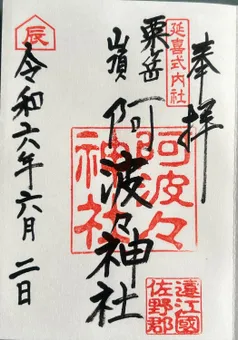 奉拝
延喜式内社
粟岳
山頂
阿波々神社
阿波々神社
遠江國
佐野郡
辰
令和六年六月二日